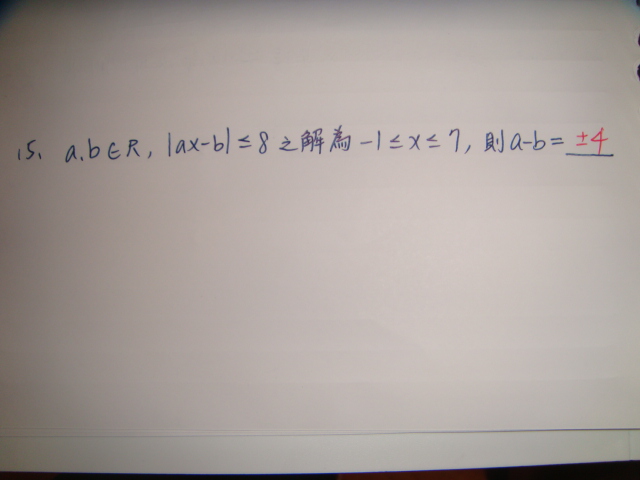 15. a.b∈R, |ax-b|≤8之解為-1≤x≤7, 則a-b=±4